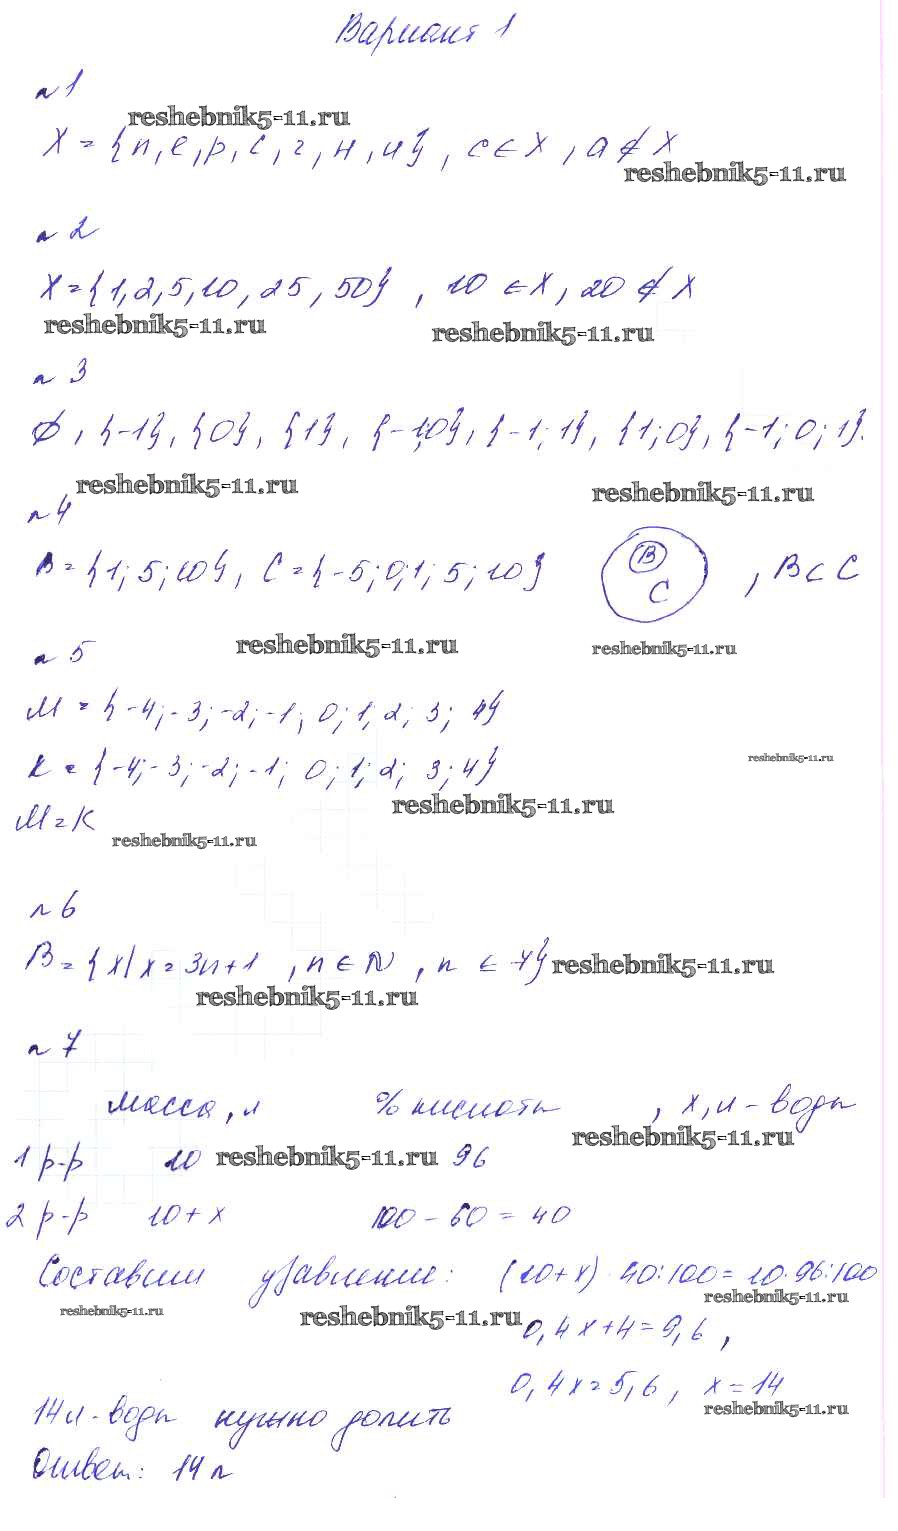 Вариант 1
№1
reshebnik5-11.ru
X = {п, е, р, с, г, н, и}, с ∈ X, а ∉ X
reshebnik5-11.ru
№2
X = {1, 2, 5, 10, 25, 50}, 10 ∈ X, 20 ∉ X
reshebnik5-11.ru reshebnik5-11.ru
№3
∅, {-1}, {0}, {1}, {-1;0}, {-1; 1}, {1; 0}, {-1; 0; 1}.
reshebnik5-11.ru reshebnik5-11.ru
№4
B = {1; 5; 10}, C = {-5; 0; 1; 5; 10} B C , B ⊂ C
reshebnik5-11.ru reshebnik5-11.ru
№5
M = {-4; -3; -2; -1; 0; 1; 2; 3; 4}
K = {-4; -3; -2; -1; 0; 1; 2; 3; 4}
reshebnik5-11.ru
reshebnik5-11.ru
M = K
reshebnik5-11.ru
№6
B = {x | x = 3n+1, n ∈ N, n ≤ 7} reshebnik5-11.ru
reshebnik5-11.ru
№7
Масса, л % кислоты , х, л - воды
reshebnik5-11.ru
1 р-р 10 reshebnik5-11.ru 96
2 р-р 10 + x 100 - 60 = 40
Составим уравнение: (10+x)·40:100 = 10·96:100
reshebnik5-11.ru
reshebnik5-11.ru reshebnik5-11.ru
0,4x+4=9,6,
0,4x=5,6, x=14
reshebnik5-11.ru
14 л - воды нужно долить
Ответ: 14 л